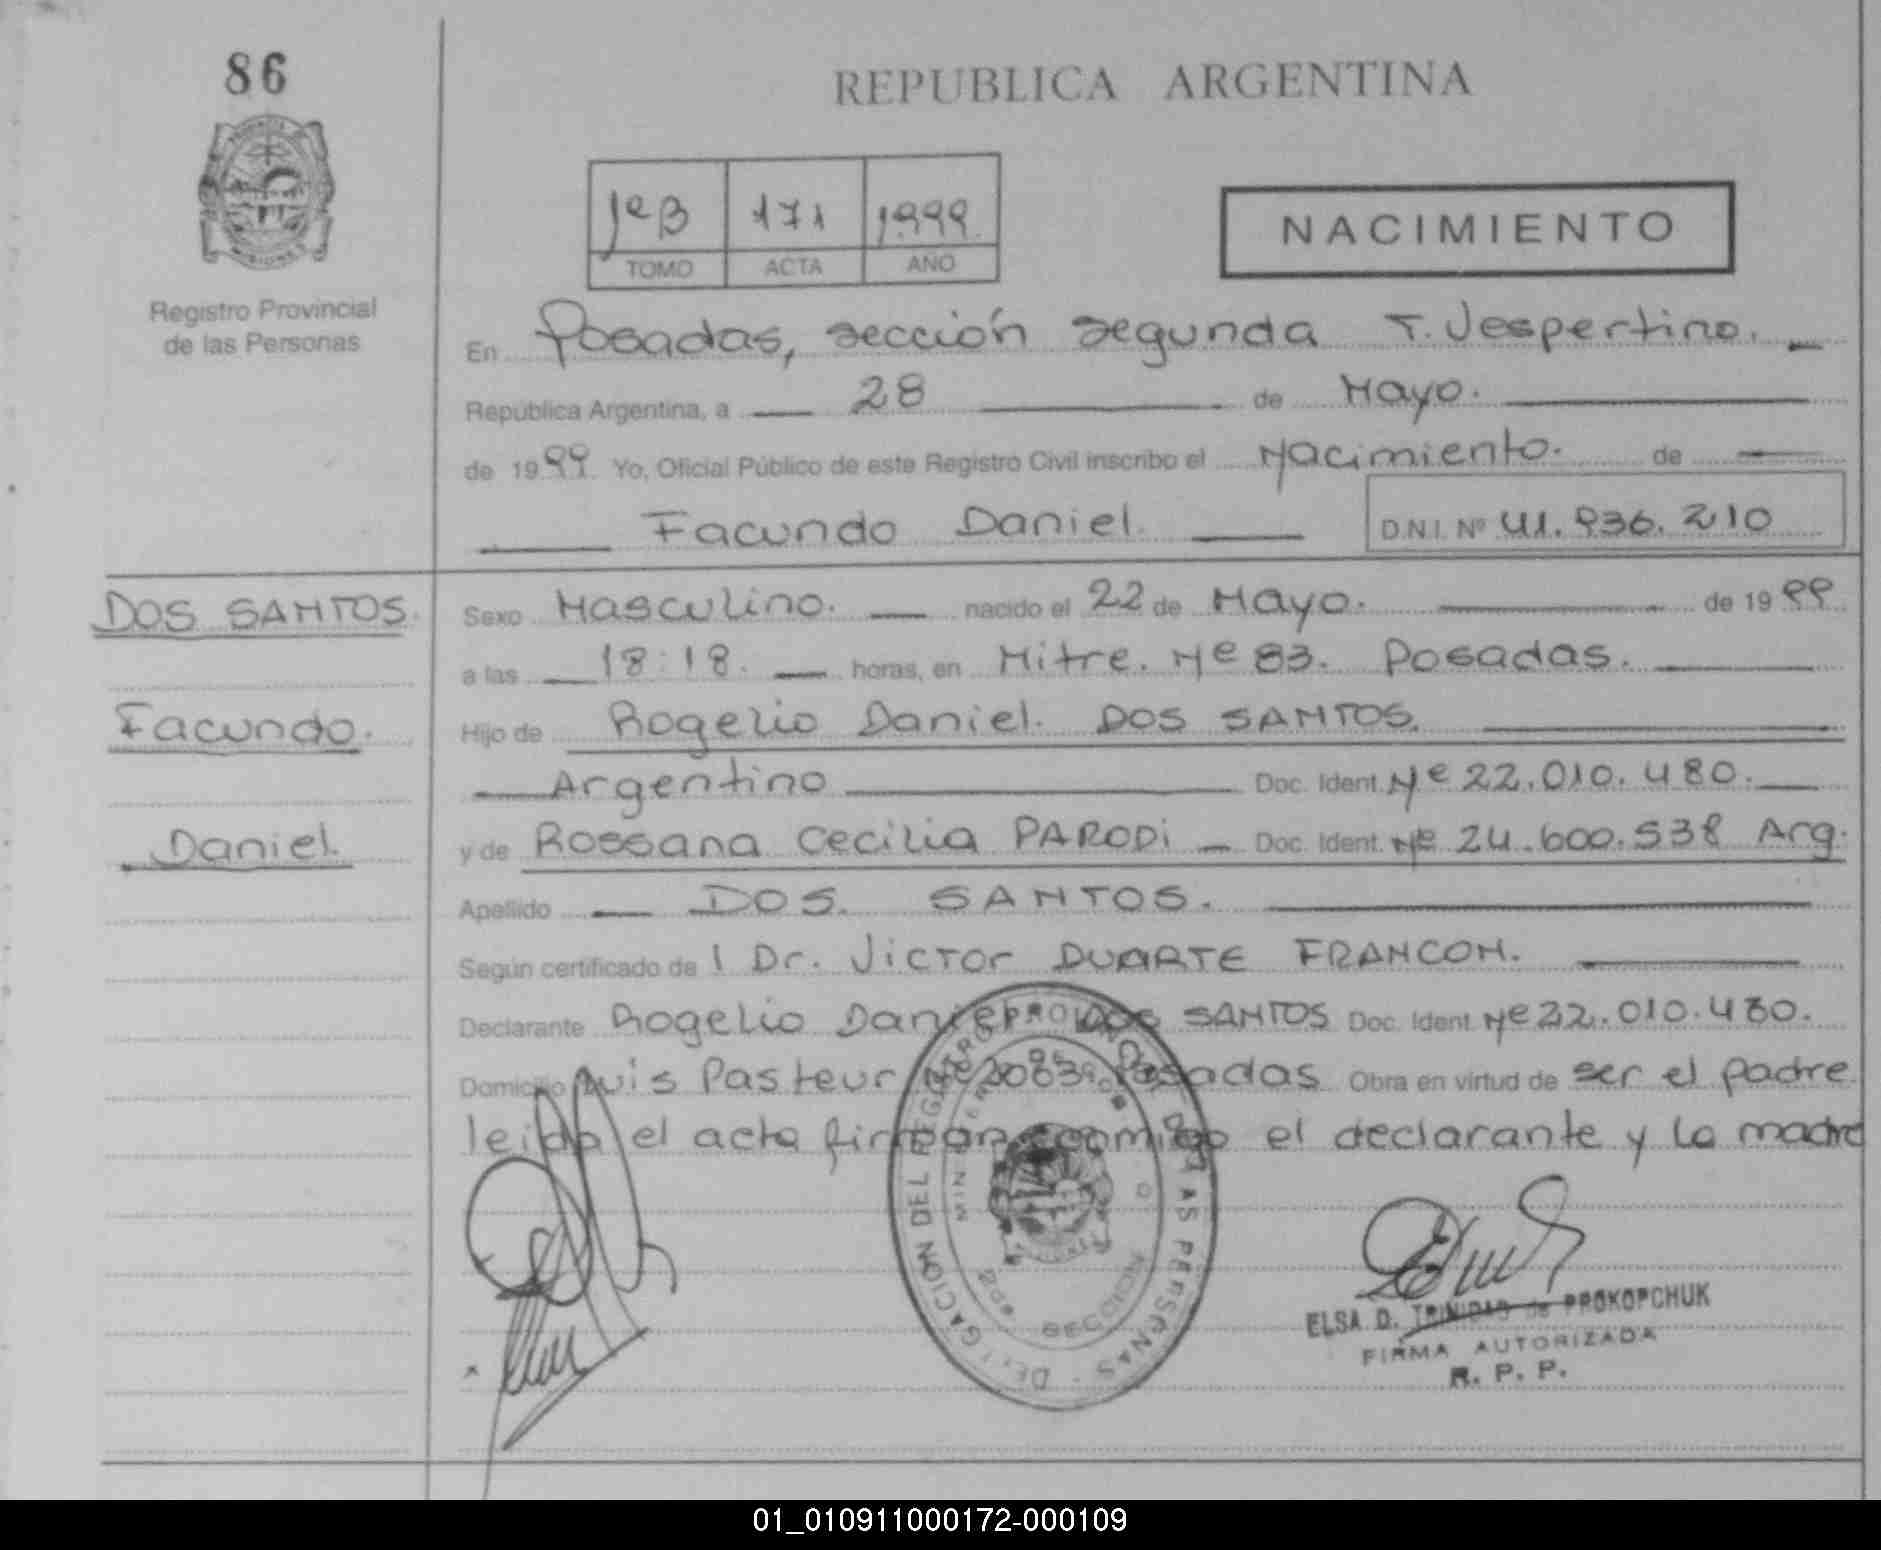 86
REPUBLICA ARGENTINA
1º B 171 1999
TOMO ACTA AÑO
NACIMIENTO
Registro Provincial
de las Personas
En Posadas, sección segunda T. Vespertino.
República Argentina, a 28 de Mayo.
de 1999. Yo, Oficial Público de este Registro Civil inscribo el Nacimiento. de
Facundo Daniel. D.N.I. Nº 41.936.210
DOS SANTOS.
Facundo.
Daniel.
Sexo Masculino. nacido el 22 de Mayo. de 1999
a las 18:18. horas, en Mitre. Nº 83. Posadas.
Hijo de Rogelio Daniel. DOS SANTOS.
Argentino Doc. Ident. Nº 22.010.480.
y de Rossana Cecilia PARODi Doc. Ident. Nº 24.600.538 Arg.
Apellido DOS. SANTOS.
Según certificado de l Dr. Victor DUARTE FRANCON.
Declarante Rogelio Daniel DOS SANTOS Doc. Ident. Nº 22.010.480.
Domicilio Luis Pasteur Nº Posadas Obra en virtud de ser el padre
leida el acta firman conmigo el declarante y la madre
DELEGACION DEL REGISTRO PROVINCIAL DE LAS PERSONAS
SECCION
ELSA D. TRINIDAD de PROKOPCHUK
FIRMA AUTORIZADA
R. P. P.
01_010911000172-000109